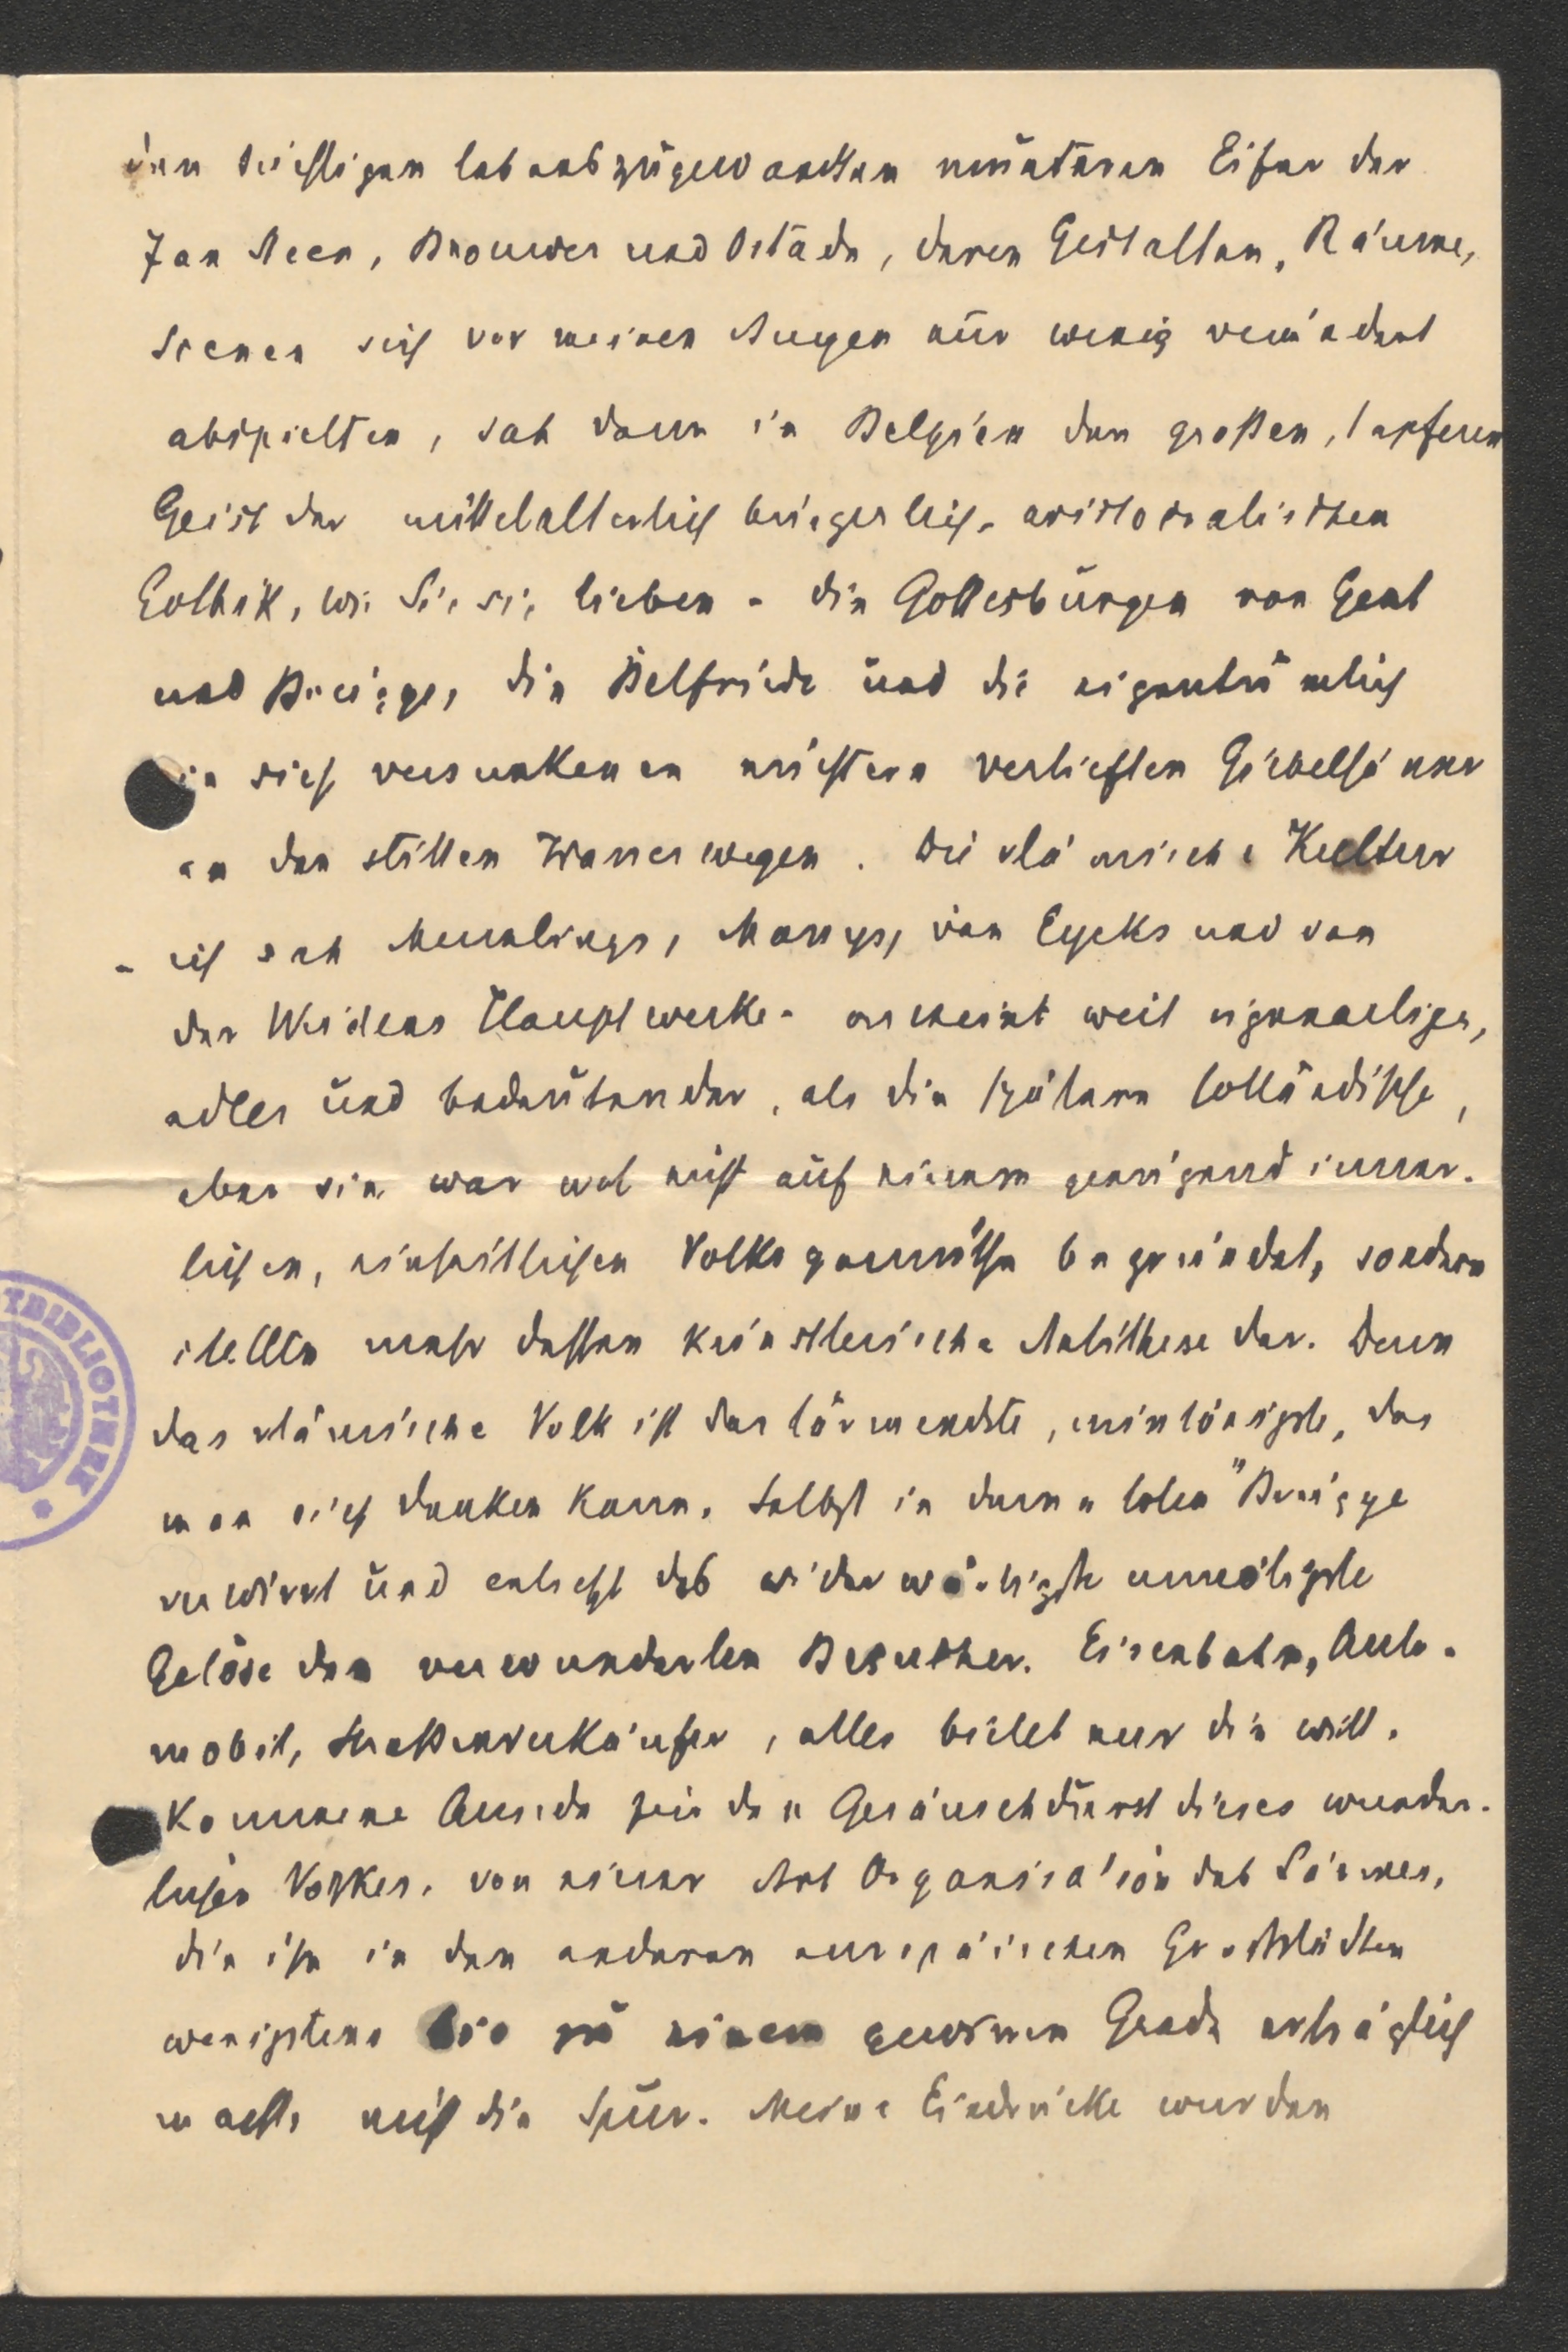 den tüchtigen lebenszugewandten munteren Eifer der
Jan Steen, Brouwer und Ostade, deren Gestalten, Räume,
Scenen sich vor meinen Augen nur wenig verändert
abspielten, sah dann in Belgien den großen, tapferen
Geist der mittelalterlich bürgerlich-aristokratischen
Gothik, wie Sie sie lieben - die Gottesburgen von Gent
und Bruegge, die Belfriede und die eigentümlich
in sich versunkenen nüchtern vertieften Giebelhäuser
an den stillen Wasserwegen. Die vlämische Kultur
- ich sah Memlings, Massys, van Eycks und van
der Weidens Hauptwerke - erscheint weit eigenartiger,
edler und bedeutender, als die spätere holländische,
aber sie war wol nicht auf einem genügend inner-
lichen, einheitlichen Volksgemüthe begründet, sondern
stellte mehr dessen künstlerische Antithese dar. Denn
das vlämische Volk ist das lärmendste, misstönigste, das
man sich denken kann. Selbst in dem "toten" Bruegge
verwirrt und entsetzt das widerwärtigste unnötigste
Getöse den verwunderten Besucher. Eisenbahn, Auto-
mobil, Straßenverkäufer, alles bietet nur die will-
kommene Ausrede für den Geräuschdurst dieses wunder-
lichen Volkes. von einer Art Organisation des Lärmes,
die ihn in den anderen europäischen Großstädten
wenigstens bis zu einem gewissen Grade erträglich
macht, nicht die Spur. Meine Eindrücke wurden
TBIBLIOTHEK